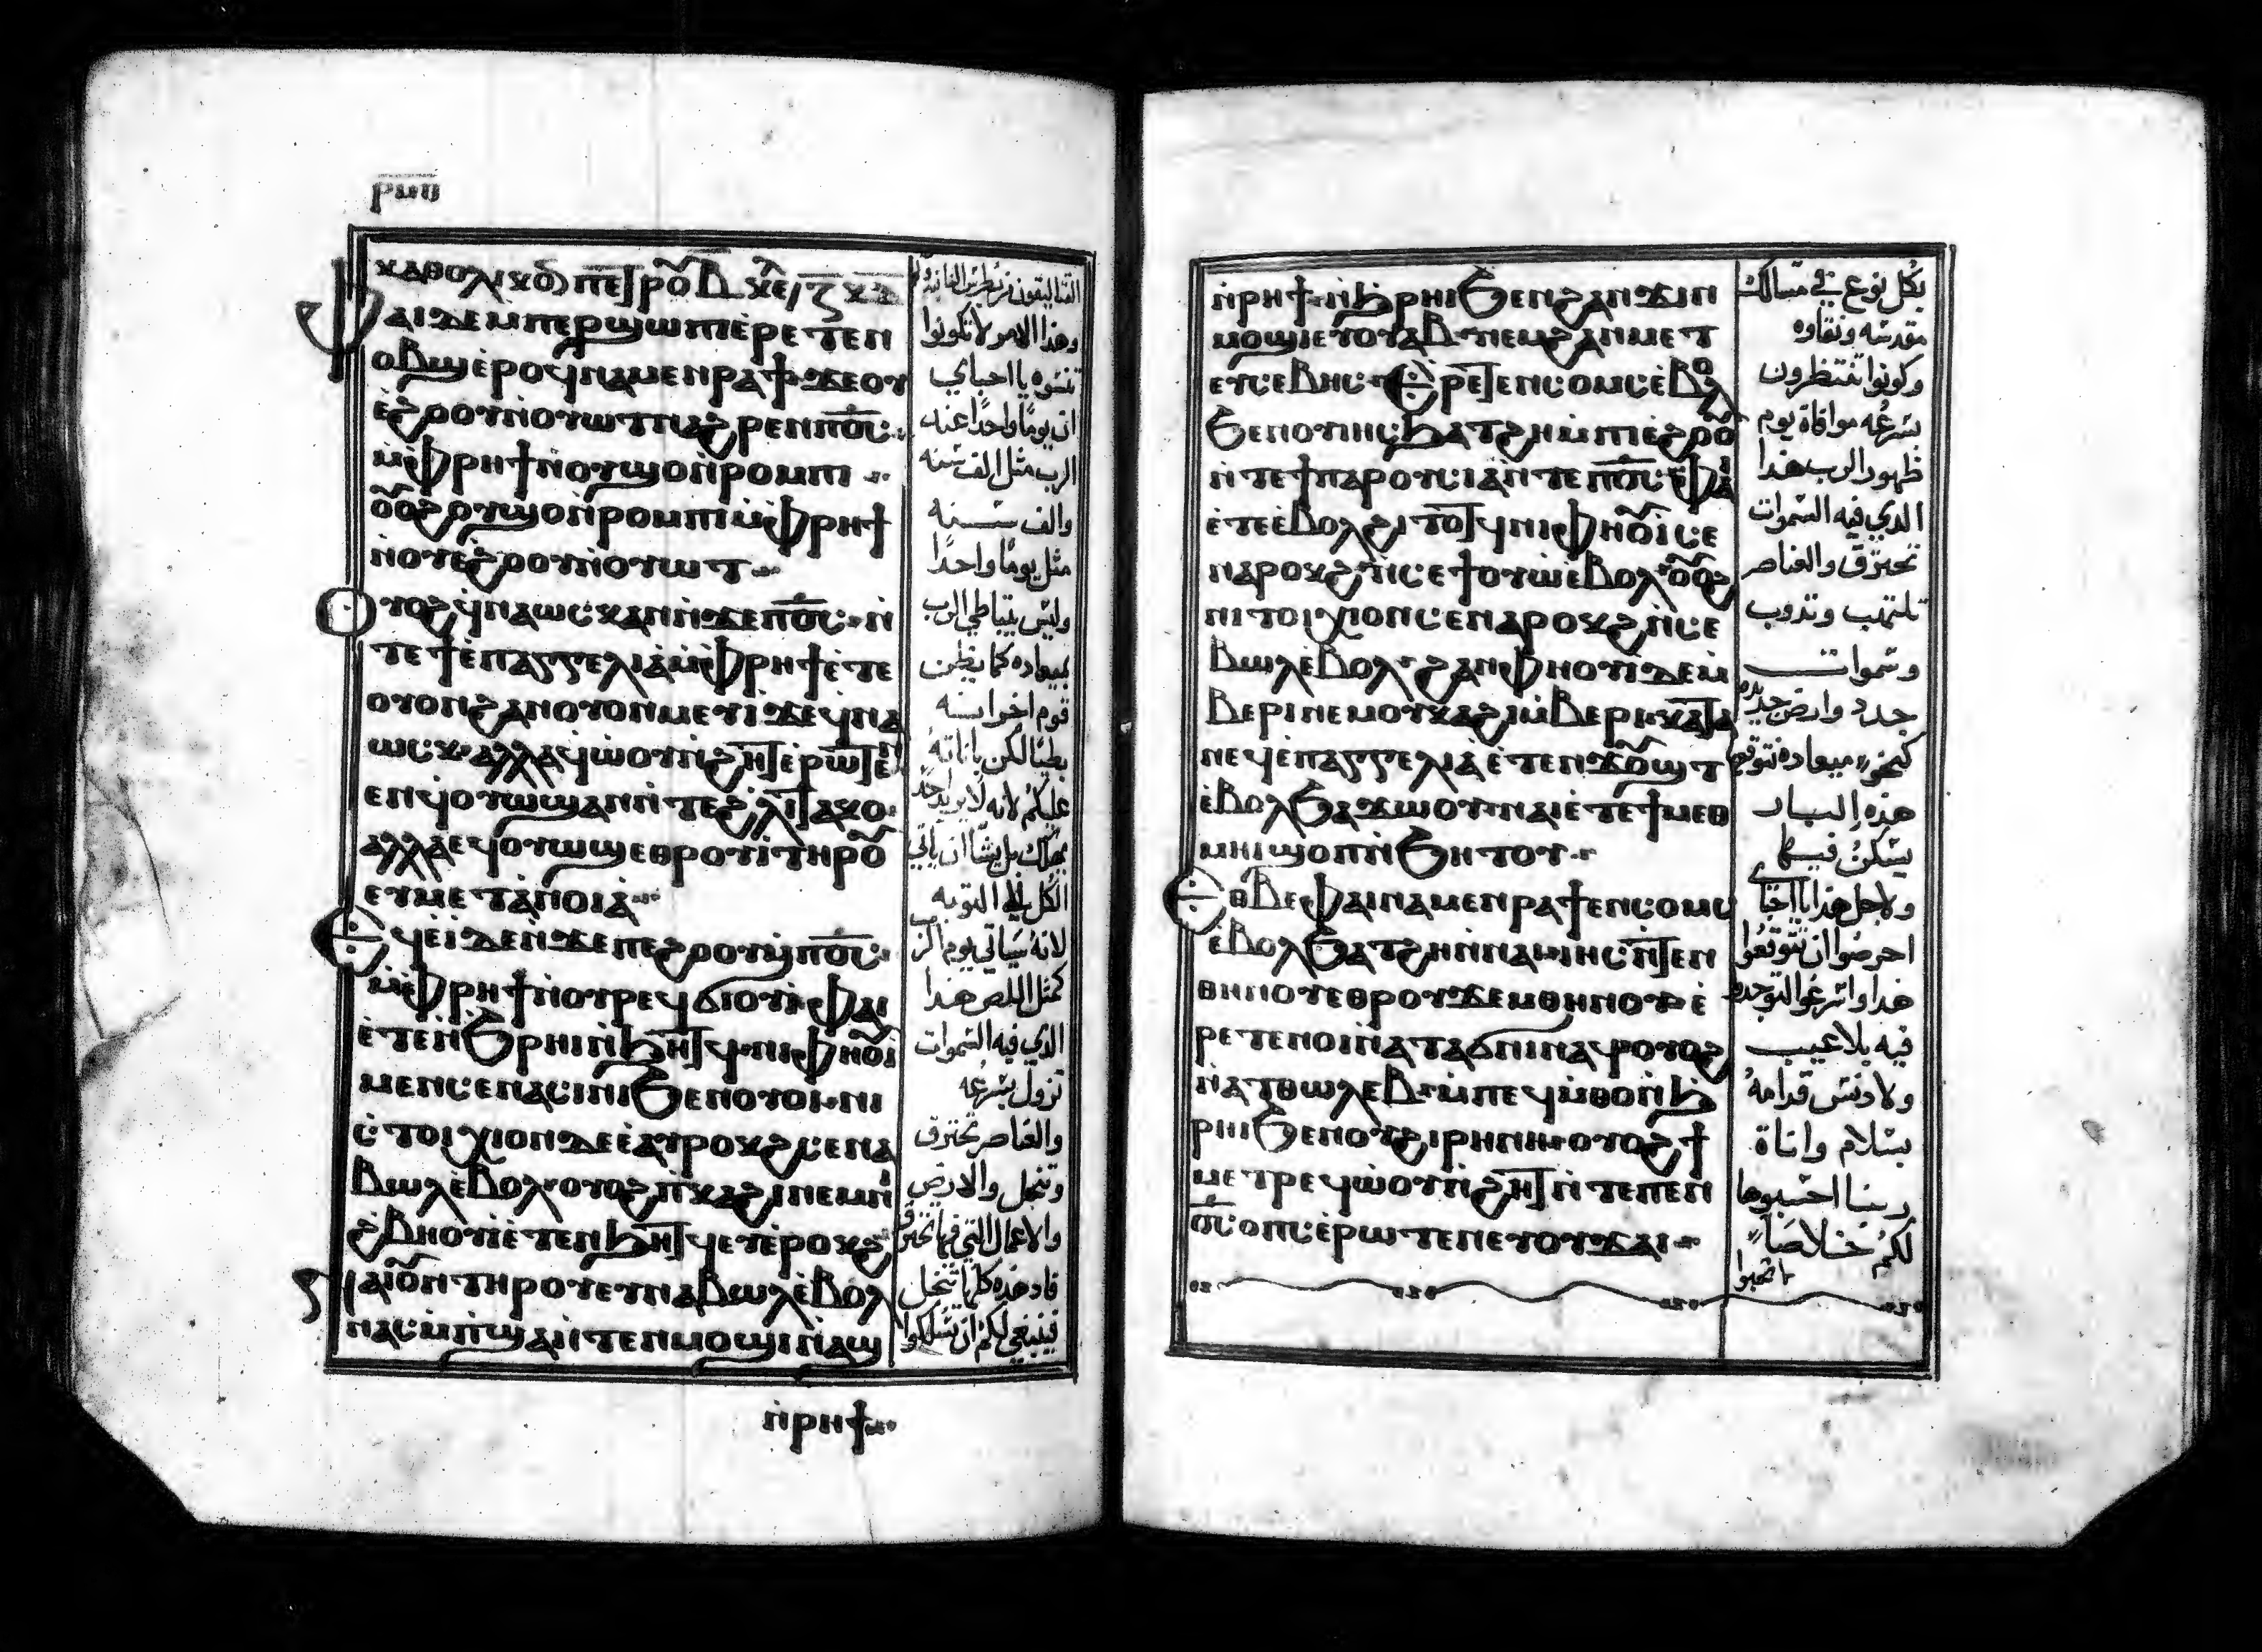 ⲣⲙⲑ
ⲕⲁⲑⲟⲗⲓⲕⲟⲛ ⲡⲉⲧⲣⲟⲩ ⲃ
ⲫⲁⲓ ⲇⲉ ⲙⲡⲉⲣϣⲱⲡⲓ ⲉⲣⲉⲧⲉⲛ
ⲟⲃϣ ⲉⲣⲟϥ ⲛⲁⲙⲉⲛⲣⲁϯ ϫⲉ ⲟⲩ
ⲉϩⲟⲟⲩ ⲛⲟⲩⲱⲧ ϩⲁⲣⲉⲛ ⲡϭⲟⲓⲥ
ⲙⲫⲣⲏϯ ⲛⲟⲩϣⲟ ⲛⲣⲟⲙⲡⲓ
ⲟⲩⲟϩ ⲟⲩϣⲟ ⲛⲣⲟⲙⲡⲓ ⲙⲫⲣⲏϯ
ⲛⲟⲩⲉϩⲟⲟⲩ ⲛⲟⲩⲱⲧ
ⲟⲩⲟϩ ϥⲛⲁⲱⲥⲕ ⲁⲛ ⲛϫⲉ ⲡϭⲟⲓⲥ ⲛ
ⲧⲉ ϯⲉⲡⲁⲅⲅⲉⲗⲓⲁ ⲙⲫⲣⲏϯ ⲉⲧⲉ
ⲟⲩⲟⲛ ϩⲁⲛⲟⲩⲟⲛ ⲙⲉⲩⲓ ϫⲉ ϥⲛⲁ
ⲱⲥⲕ ⲁⲗⲗⲁ ϥⲱⲟⲩ ⲛϩⲏⲧ ⲉⲣⲱⲧⲉⲛ
ⲉⲛϥⲟⲩⲱϣ ⲁⲛ ⲛⲧⲉ ϩⲗⲓ ⲧⲁⲕⲟ
ⲁⲗⲗⲁ ⲉϥⲟⲩⲱϣ ⲉⲑⲣⲟⲩⲓ ⲧⲏⲣⲟⲩ
ⲉⲩⲙⲉⲧⲁⲛⲟⲓⲁ
ⲉϥⲉⲓ ⲇⲉ ⲛϫⲉ ⲡⲉϩⲟⲟⲩ ⲙⲡϭⲟⲓⲥ
ⲙⲫⲣⲏϯ ⲛⲟⲩⲣⲉϥϭⲓⲟⲩⲓ ⲫⲁⲓ
ⲉⲧⲉ ⲛϧⲣⲏⲓ ⲛϧⲏⲧϥ ⲛⲓⲫⲏⲟⲩⲓ
ⲙⲉⲛ ⲥⲉⲛⲁⲥⲓⲛⲓ ϧⲉⲛ ⲟⲩⲟⲓ ⲛⲓ
ⲥⲧⲟⲓⲭⲓⲟⲛ ⲇⲉ ⲉⲩⲣⲟⲕϩ ⲥⲉⲛⲁ
ⲃⲱⲗ ⲉⲃⲟⲗ ⲟⲩⲟϩ ⲡⲕⲁϩⲓ ⲛⲉⲙ ⲛⲓ
ϩⲃⲏⲟⲩⲓ ⲉⲧⲉⲛϧⲏⲧϥ ⲉⲩⲉⲣⲟⲕϩ
ⲛⲁⲓ ⲟⲩⲛ ⲧⲏⲣⲟⲩ ⲉⲩⲛⲁⲃⲱⲗ ⲉⲃⲟⲗ
ⲛⲁⲥⲙⲡϣⲁ ⲛⲧⲉⲛⲙⲟϣⲓ ⲛⲁϣ
ⲛⲣⲏϯ
وهذا الامر لا تكونوا
تنسوه يا احباي
ان يومًا واحدًا عند
الرب مثل الف سنه
والف سنه
مثل يومًا واحدًا
وليس يتباطي الرب
بميعاده كما يظن
قوم اخر انه
بطيًا لكن باناته
عليكم لانه لا يريد احد
يهلك بل يشا ان ياتي
الكل الي التوبه
لانه سياتي يوم الرب
كمثل اللص هذا
الذي فيه السموات
تزول بسرعه
والعناصر تحترق
وتنحل والارض
والاعمال التي فيها تحترق
فاذ هذه كلها تنحل
فينبغي لكم ان تسلكوا
ⲛⲣⲏϯ ⲛϧⲣⲏⲓ ϧⲉⲛ ϩⲁⲛϫⲓⲛ
ⲙⲟϣⲓ ⲉⲩⲟⲩⲁⲃ ⲛⲉⲙ ϩⲁⲛⲙⲉⲧ
ⲉⲩⲥⲉⲃⲏⲥ ⲉⲣⲉⲧⲉⲛⲥⲟⲙⲥ ⲉⲃⲟⲗ
ϧⲉⲛ ⲟⲩⲓⲏⲥ ϧⲁⲧϩⲏ ⲙⲡⲓⲉϩⲟⲟⲩ
ⲛⲧⲉ ϯⲡⲁⲣⲟⲩⲥⲓⲁ ⲛⲧⲉ ⲡϭⲟⲓⲥ ⲫⲁⲓ
ⲉⲧⲉ ⲉⲃⲟⲗ ϩⲓⲧⲟⲧϥ ⲛⲓⲫⲏⲟⲩⲓ ⲥⲉ
ⲛⲁⲣⲟⲕϩ ⲛⲥⲉϯⲟⲩⲱ ⲉⲃⲟⲗ ⲟⲩⲟϩ
ⲛⲓⲥⲧⲟⲓⲭⲓⲟⲛ ⲥⲉⲛⲁⲣⲟⲕϩ ⲛⲥⲉ
ⲃⲱⲗ ⲉⲃⲟⲗ ϩⲁⲛⲫⲏⲟⲩⲓ ⲇⲉ ⲙ
ⲃⲉⲣⲓ ⲛⲉⲙ ⲟⲩⲕⲁϩⲓ ⲙⲃⲉⲣⲓ ⲕⲁⲧⲁ
ⲛⲉϥⲉⲡⲁⲅⲅⲉⲗⲓⲁ ⲉⲧⲉⲛϫⲟⲩϣⲧ
ⲉⲃⲟⲗ ϧⲁϫⲱⲟⲩ ⲛⲁⲓ ⲉⲧⲉ ϯⲙⲉⲑ
ⲙⲏⲓ ϣⲟⲡ ⲛϧⲏⲧⲟⲩ
ⲉⲑⲃⲉ ⲫⲁⲓ ⲛⲁⲙⲉⲛⲣⲁϯ ⲉⲛⲥⲟⲙⲥ
ⲉⲃⲟⲗ ϧⲁⲧϩⲏ ⲛⲛⲁⲓ ⲓⲏⲥ ⲛⲧⲉⲛ
ⲑⲏⲛⲟⲩ ⲉⲑⲣⲟⲩϫⲉⲙ ⲑⲏⲛⲟⲩ ⲉ
ⲣⲉⲧⲉⲛⲟⲓ ⲛⲁⲧⲁϭⲛⲓ ⲛⲁϥ ⲟⲩⲟϩ
ⲛⲁⲧⲑⲱⲗⲉⲃ ⲙⲡⲉϥⲙⲑⲟ ⲛϧ
ⲣⲏⲓ ϧⲉⲛ ⲟⲩϩⲓⲣⲏⲛⲏ ⲟⲩⲟϩ ϯ
ⲙⲉⲧⲣⲉϥⲱⲟⲩ ⲛϩⲏⲧ ⲛⲧⲉ ⲡⲉⲛ
ϭⲟⲓⲥ ⲟⲡⲥ ⲉⲣⲱⲧⲉⲛ ⲉⲩⲟⲩϫⲁⲓ
بكل نوع في مسالك
مقدسه ونقاوه
وكونوا تنتظرون
بسرعه موافاة يوم
ظهور الرب هذا
الذي فيه السموات
تحترق والعناصر
تلتهب وتذوب
وسموات
جدد وارض جديده
كنحو ميعاده نتوقع
هذه البار
يسكن فيها
ولاجل هذا يا احباي
احرصوا ان تتوقعوا
هذا واسرعوا لتوجدوا
فيه بلا عيب
ولا دنس قدامه
بسلام واناة
ربنا احسبوها
لكم خلاصًا